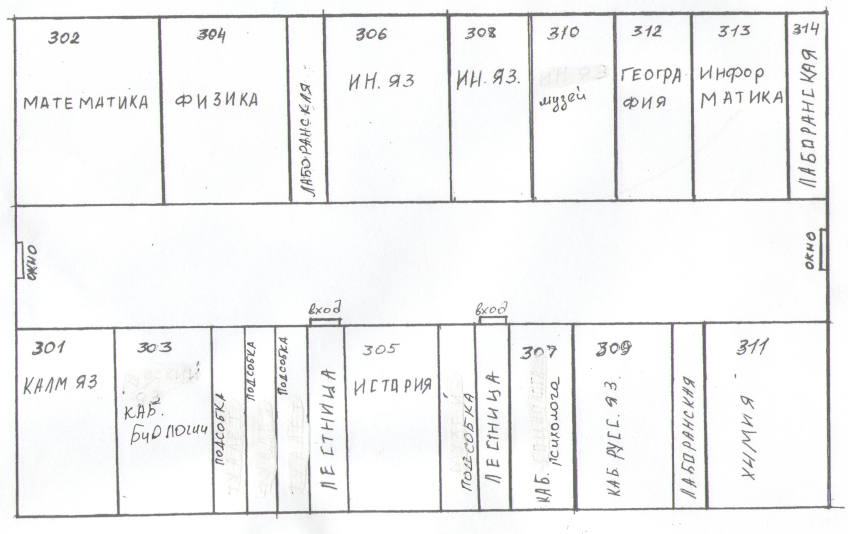 302
МАТЕМАТИКА
304
ФИЗИКА
ЛАБОРАНСКАЯ
306
ИН. ЯЗ
308
ИН. ЯЗ.
310
музей
312
ГЕОГРА
ФИЯ
313
ИНФОР
МАТИКА
314
ЛАБОРАНСКАЯ
ОКНО
ОКНО
вход
вход
301
КАЛМ ЯЗ
303
КАБ.
БИОЛОГИИ
ПОДСОБКА
ПОДСОБКА
ПОДСОБКА
ЛЕСТНИЦА
305
ИСТАРИЯ
ПОДСОБКА
ЛЕСТНИЦА
307
КАБ. психолога
309
КАБ РУСС. ЯЗ.
ЛАБОРАНСКАЯ
311
ХИМИЯ